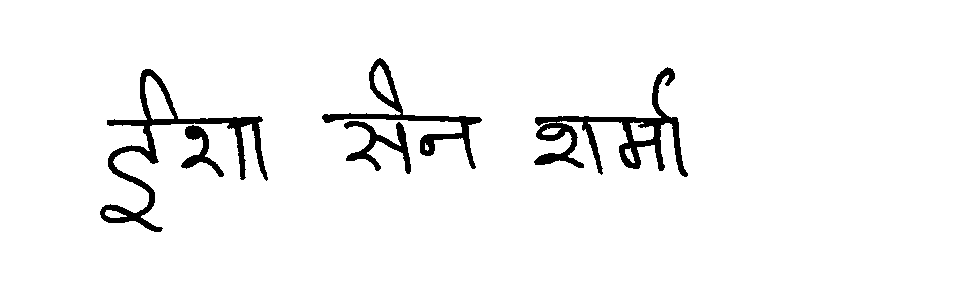 ईशा सैन शर्मा